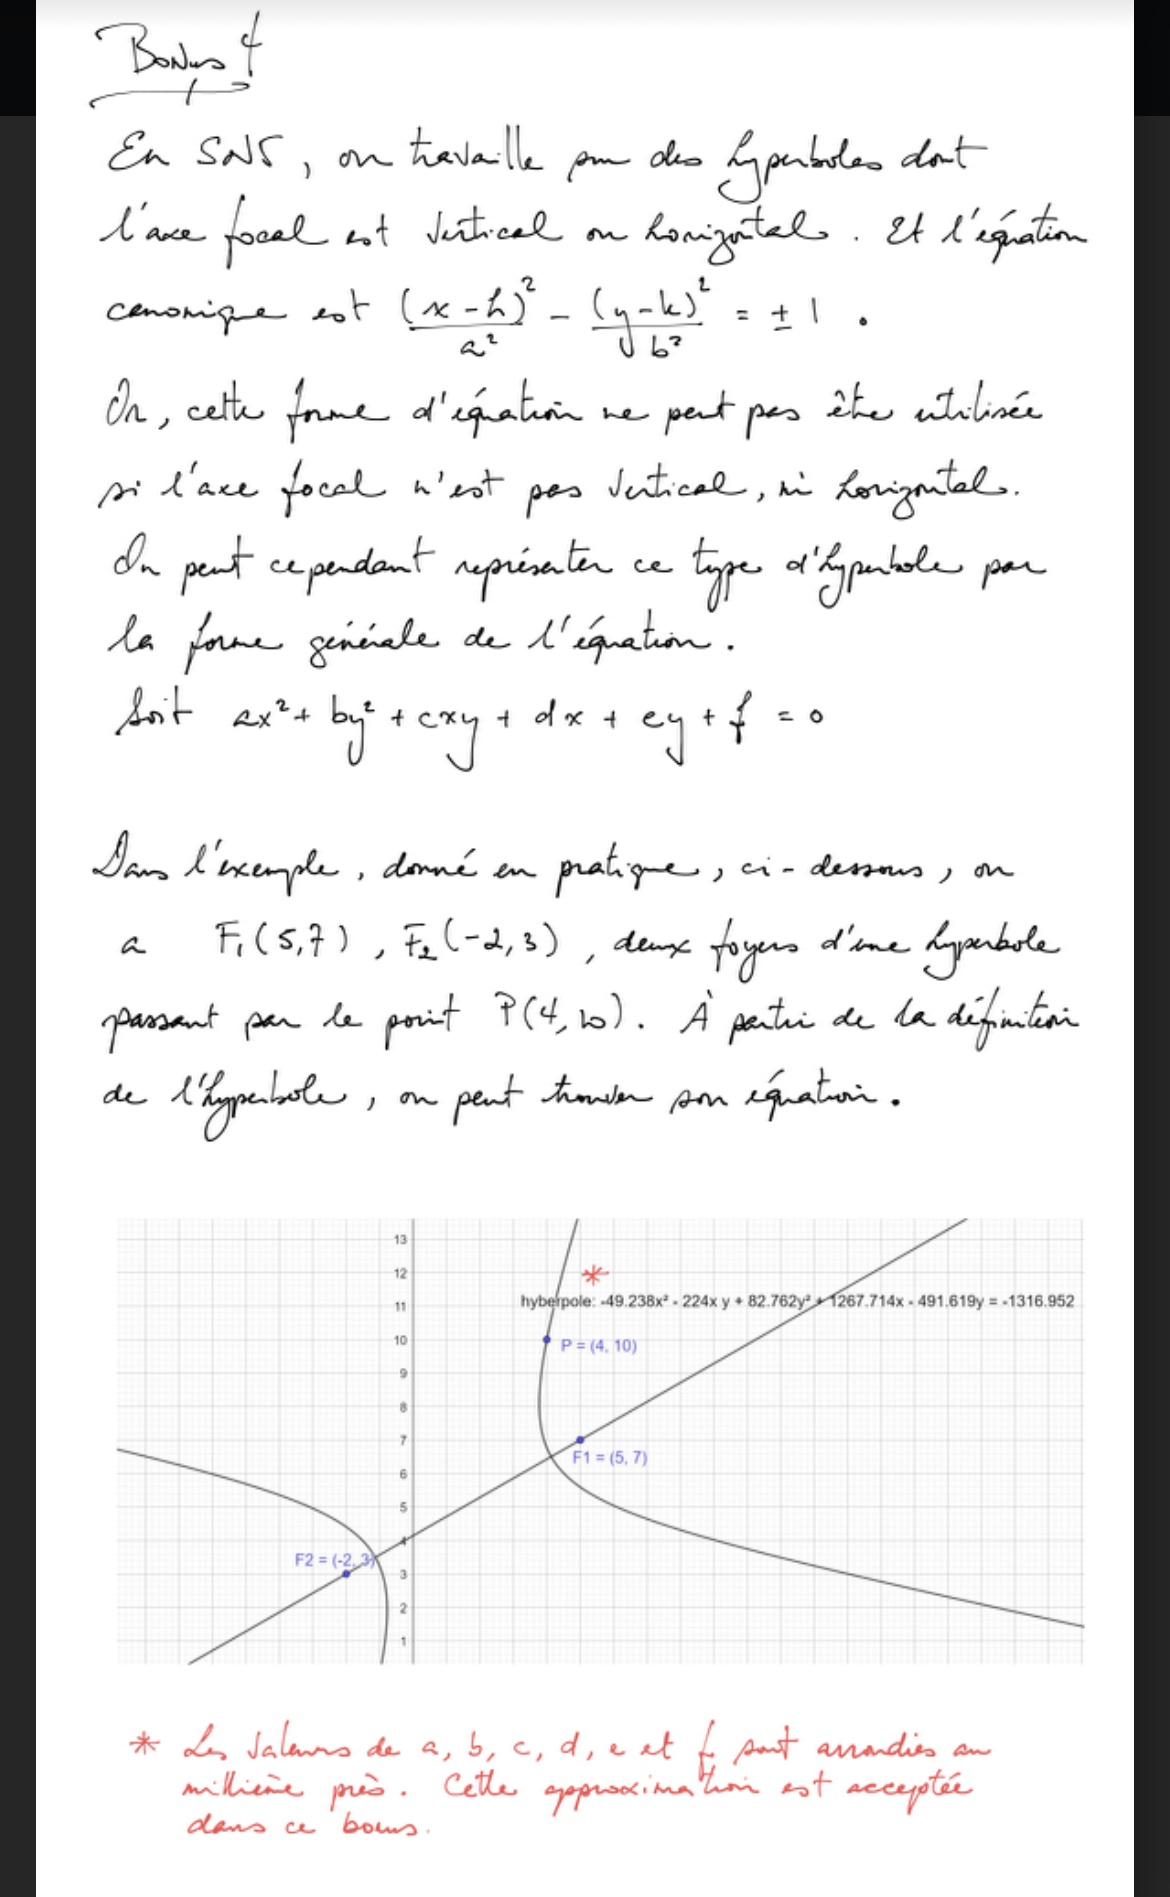 Bonus 4
En SN5, on travaille sur des hyperboles dont
l'axe focal est vertical ou horizontal. Et l'équation
canonique est (x-h)²/a² - (y-k)²/b² = ± 1.
Or, cette forme d'équation ne peut pas être utilisée
si l'axe focal n'est pas vertical, ni horizontal.
On peut cependant représenter ce type d'hyperbole par
la forme générale de l'équation.
Soit ax² + by² + cxy + dx + ey + f = 0
Dans l'exemple, donné en pratique, ci-dessous, on
a F₁(5,7), F₂(-2,3), deux foyers d'une hyperbole
passant par le point P(4,10). À partir de la définition
de l'hyperbole, on peut trouver son équation.
13
*
12
hyberpole: -49.238x² - 224x y + 82.762y² + 1267.714x - 491.619y = -1316.952
11
10
P = (4, 10)
9
8
7
F1 = (5, 7)
6
5
4
F2 = (-2, 3)
3
2
1
* Les valeurs de a, b, c, d, e et f sont arrondies au
millième près. Cette approximation est acceptée
dans ce bonus.